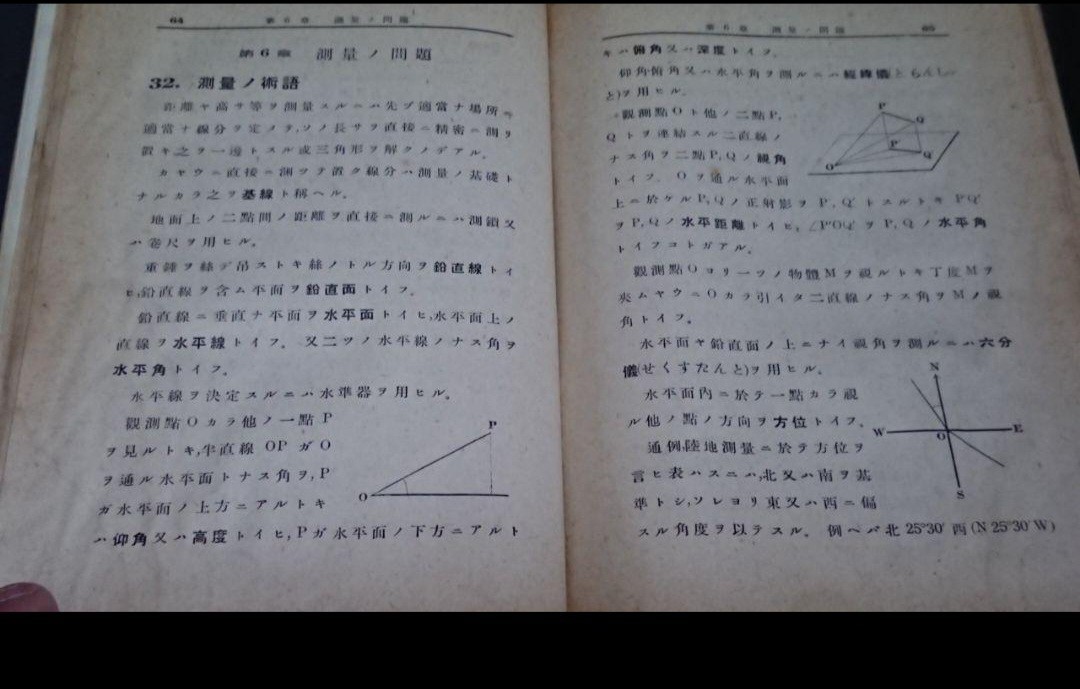 64 第6章 測量ノ問題
第6章 測量ノ問題
32. 測量ノ術語
距離ヤ高サ等ヲ測量スルニハ先ヅ適當ナ場所ニ
適當ナ線分ヲ定メテ,ソノ長サヲ直接ニ精密ニ測リ
置キ之ヲ一邊トスル或三角形ヲ解クノデアル。
カヤウニ直接ニ測ツテ置ク線分ハ測量ノ基礎ト
ナルカラ之ヲ基線ト稱ヘル。
地面上ノ二點間ノ距離ヲ直接ニ測ルニハ測鎖又
ハ卷尺ヲ用ヒル。
重錘ヲ絲デ吊ストキ絲ノトル方向ヲ鉛直線トイ
ヒ,鉛直線ヲ含ム平面ヲ鉛直面トイフ。
鉛直線ニ垂直ナ平面ヲ水平面トイヒ,水平面上ノ
直線ヲ水平線トイフ。又二ツノ水平線ノナス角ヲ
水平角トイフ。
水平線ヲ決定スルニハ水準器ヲ用ヒル。
觀測點Oカラ他ノ一點P
ヲ見ルトキ,半直線OPガO
ヲ通ル水平面トナス角ヲ,P
ガ水平面ノ上方ニアルトキ
ハ仰角又ハ高度トイヒ,Pガ水平面ノ下方ニアルト
P
O
第6章 測量ノ問題 65
キハ俯角又ハ深度トイフ。
仰角俯角又ハ水平角ヲ測ルニハ經緯儀
と)ヲ用ヒル。
觀測點Oト他ノ二點P,
Qトヲ連結スル二直線ノ
ナス角ヲ二點P,Qノ視角
トイフ。Oヲ通ル水平面
上ニ於ケルP,Qノ正射影ヲP',Q'トスルトキP'Q'
ヲP,Qノ水平距離トイヒ,∠P'OQ'ヲP,Qノ水平角
トイフコトガアル。
P
Q
P'
Q'
O
觀測點Oヨリ一ツノ物體Mヲ視ルトキ丁度Mヲ
夾ムヤウニOカラ引イタ二直線ノナス角ヲMノ視
角トイフ。
水平面ヤ鉛直面ノ上ニナイ視角ヲ測ルニハ六分
儀(せくすたんと)ヲ用ヒル。
水平面內ニ於テ一點カラ視
ル他ノ點ノ方向ヲ方位トイフ。
通例,陸地測量ニ於テ方位ヲ
言ヒ表ハスニハ,北又ハ南ヲ基
準トシ,ソレヨリ東又ハ西ニ偏
スル角度ヲ以テスル。例ヘバ北25°30'西(N 25°30' W)
N
W
O
E
S